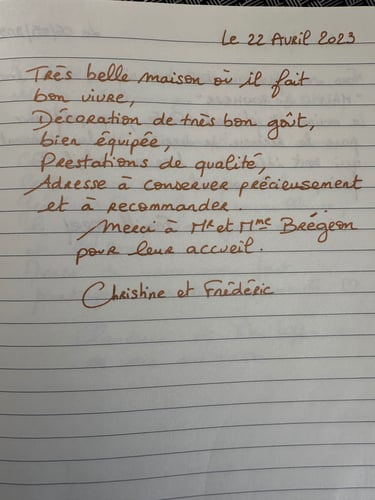 Le 22 Avril 2023
Très belle maison où il fait
bon vivre,
Décoration de très bon goût,
bien équipée,
Prestations de qualité,
Adresse à conserver précieusement
et à recommander.
Merci à Mr et Mme Brégeon
pour leur accueil.
Christine et Frédéric